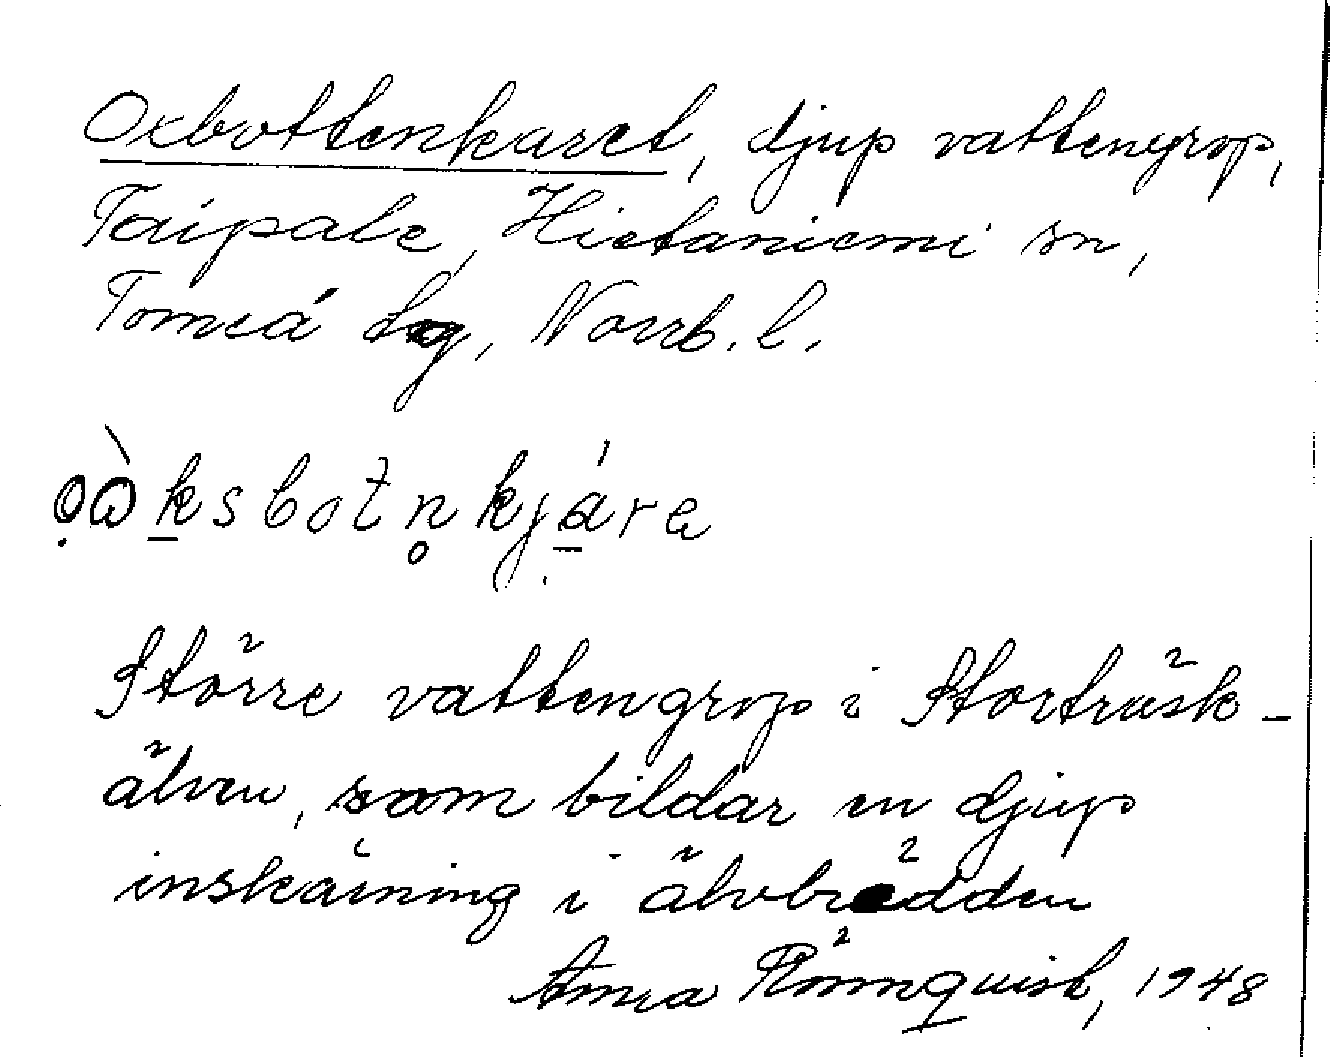 Oxbottenkaret, djup vattengrop,
Taipale, Hietaniemi sn,
Torneå tg, Norrb. l.
o̩òksbotn̥kjárɐ
Större vattengrop i Storträsk-
älven, som bildar en djup
inskärning i älvbrädden
Anna Rönnquist, 1948